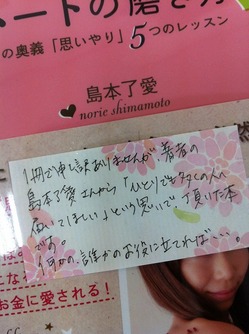 ートの磨き方
の奥義「思いやり」5つのレッスン
島本了愛
norie shimamoto
1冊で申し訳ありませんが、著者の
島本了愛さんから「ひとりでも多くの人へ
届いてほしい」という思いで、頂いた本
です。
何かの、誰かのお役に立てれば…。
にな
お金に愛される!